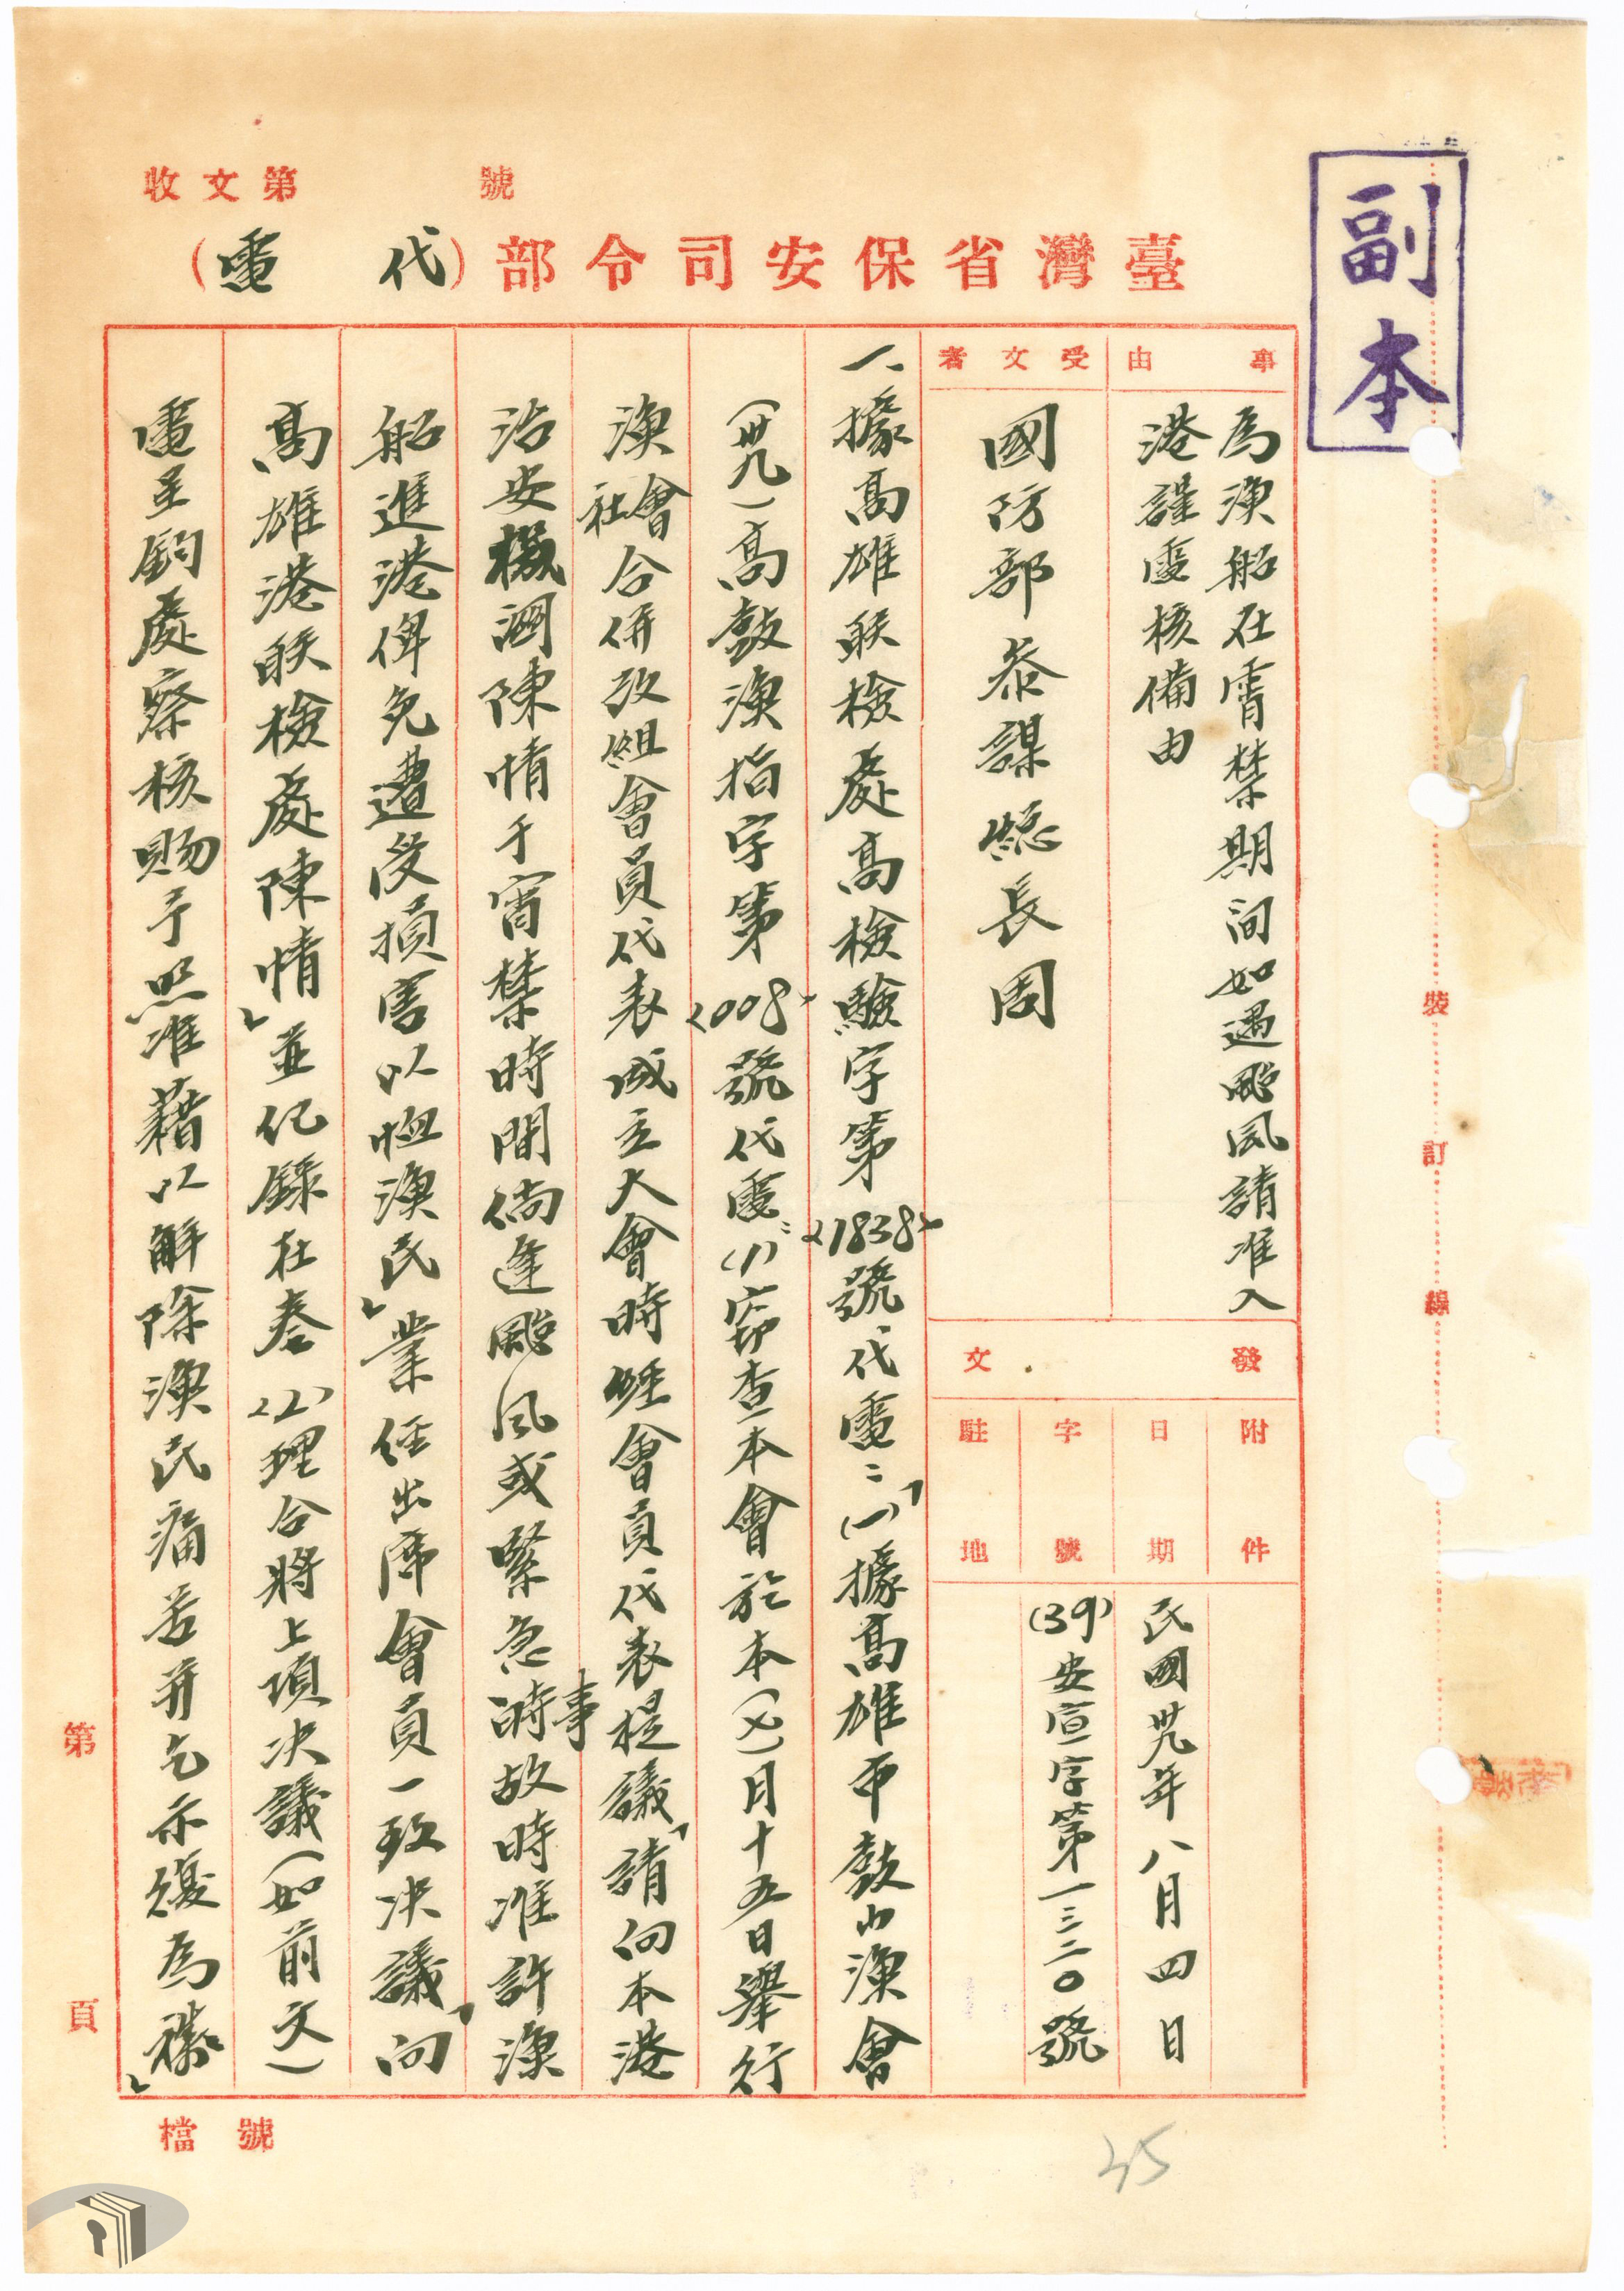 副本
收文第 號
臺灣省保安司令部(代電)
事由
為漁船在宵禁期間如遇颱風請准入
港謹電核備由
受文者
國防部參謀總長周
發文
附件
日期
民國卅九年八月四日
字號
(39)安宣字第一三二〇號
駐地
一、據高雄联檢處高檢驗字第<1838>號代電:「(一)據高雄市鼓山漁會
(卅九)高鼓漁指字第<008>號代電:(1)竊查本會於本(七)月十五日舉行
漁會社合併改組會員代表成立大會時經會員代表提議「請向本港
治安機關陳情于宵禁時間倘逢颱風或緊急事故時准許漁
船進港俾免遭受損害以恤漁民」業經出席會員一致决議「向
高雄港联檢處陳情」並纪錄在卷(2)理合將上項决議(如前文)
電呈鈞處察核賜予照准藉以解除漁民痛苦并乞示復為禱」
裝訂線
第 頁
檔號
35